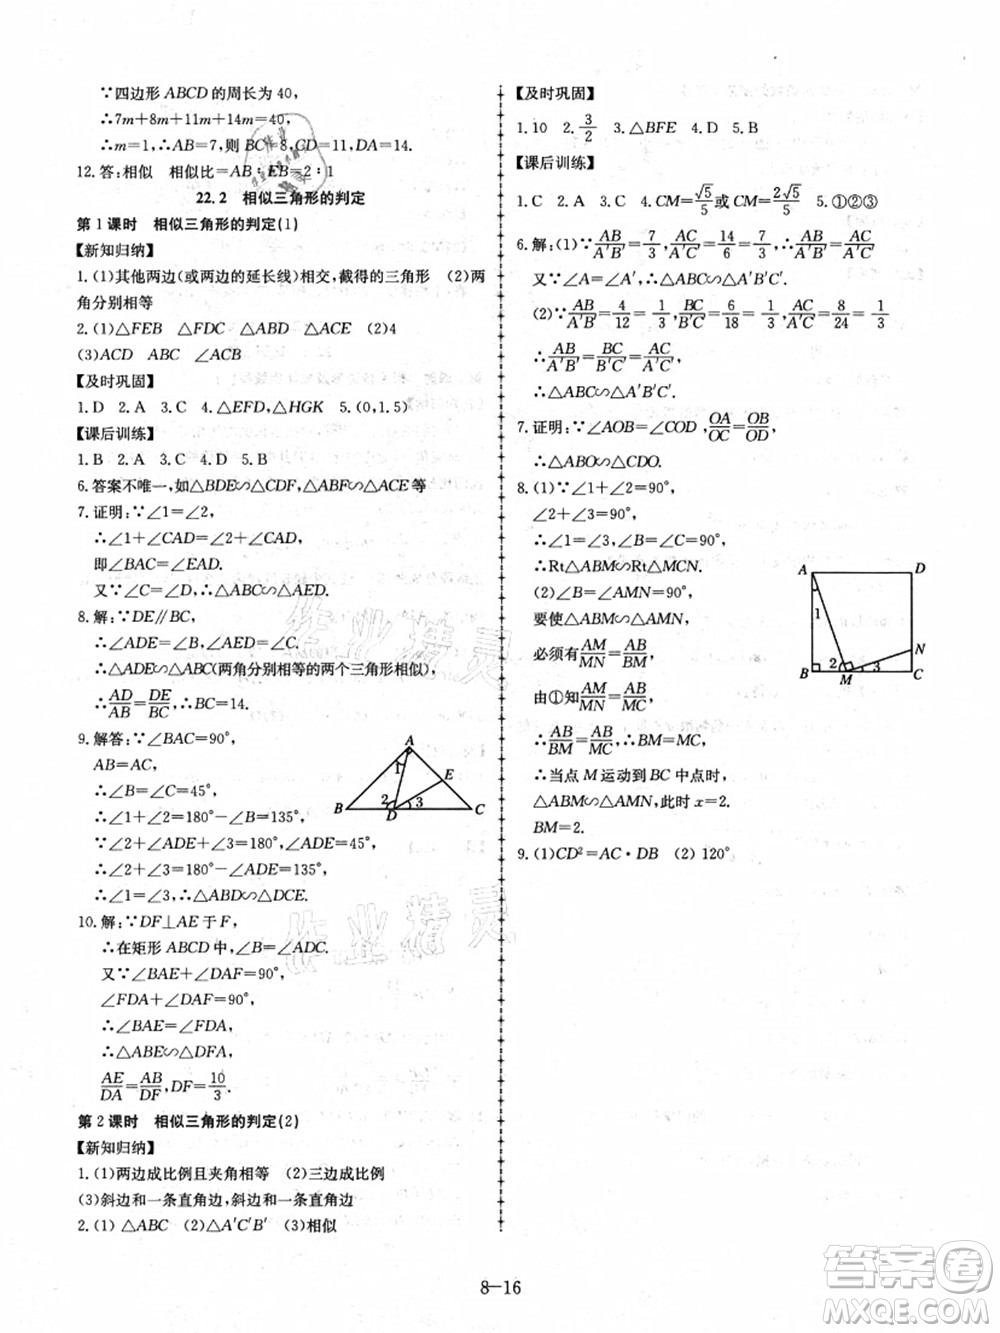 ∵四边形 ABCD 的周长为 40,
∴7m+8m+11m+14m=40,
∴m=1,∴AB=7,则 BC=8,CD=11,DA=14.
12.答:相似 相似比=AB∶EB=2∶1
22.2 相似三角形的判定
第 1 课时 相似三角形的判定(1)
【新知归纳】
1.(1)其他两边(或两边的延长线)相交,截得的三角形 (2)两
角分别相等
2.(1)△FEB △FDC △ABD △ACE (2)4
(3)ACD ABC ∠ACB
【及时巩固】
1.D 2.A 3.C 4.△EFD,△HGK 5.(0,1.5)
【课后训练】
1.B 2.A 3.C 4.D 5.B
6.答案不唯一,如△BDE∽△CDF,△ABF∽△ACE等
7.证明:∵∠1=∠2,
∴∠1+∠CAD=∠2+∠CAD,
即∠BAC=∠EAD.
又∵∠C=∠D,∴△ABC∽△AED.
8.解:∵DE∥BC,
∴∠ADE=∠B,∠AED=∠C.
∴△ADE∽△ABC(两角分别相等的两个三角形相似),
∴AD/AB=DE/BC,∴BC=14.
9.解答:∵∠BAC=90°,
AB=AC,
∴∠B=∠C=45°,
∴∠1+∠2=180°−∠B=135°,
∵∠2+∠ADE+∠3=180°,∠ADE=45°,
∴∠2+∠3=180°−∠ADE=135°,
∴∠1=∠3,∴△ABD∽△DCE.
10.解:∵DF⊥AE于F,
∴在矩形 ABCD 中,∠B=∠AFD.
又∵∠BAE+∠DAF=90°,
∠FDA+∠DAF=90°,
∴∠BAE=∠FDA,
∴△ABE∽△DFA,
AE/DA=AB/DF,DF=10/3.
第 2 课时 相似三角形的判定(2)
【新知归纳】
1.(1)两边成比例且夹角相等 (2)三边成比例
(3)斜边和一条直角边,斜边和一条直角边
2.(1) △ABC (2)△A′C′B′ (3)相似
A
1
E
2
3
B
D
C
【及时巩固】
1.10 2.3/2 3.△BFE 4.D 5.B
【课后训练】
1.C 2.A 3.C 4.CM=√5/5或 CM=2√5/5 5.①②③
6.解:(1)∵AB/A′B′=7/3,AC/A′C′=14/6=7/3,∴AB/A′B′=AC/A′C′
又∵∠A=∠A′,∴△ABC∽△A′B′C′.
(2)∵AB/A′B′=4/12=1/3,BC/B′C′=6/18=1/3,AC/A′C′=8/24=1/3
∴AB/A′B′=BC/B′C′=AC/A′C′
∴△ABC∽△A′B′C′.
7.证明:∵∠AOB=∠COD,OA/OC=OB/OD,
∴△ABO∽△CDO.
8.(1)∵∠1+∠2=90°,
∠2+∠3=90°,
∴∠1=∠3,∠B=∠C=90°,
∴Rt△ABM∽Rt△MCN.
(2)∵∠B=∠AMN=90°,
要使△ABM∽△AMN,
必须有AM/MN=AB/BM,
由①知AM/MN=AB/MC,
∴AB/BM=AB/MC,∴BM=MC,
∴当点 M 运动到 BC 中点时,
△ABM∽△AMN,此时 x=2.
BM=2.
9.(1)CD²=AC·DB (2)120°
A
D
1
N
2
3
B
M
C
8—16
作业精灵
作业精灵
答案圈
MXQE.COM